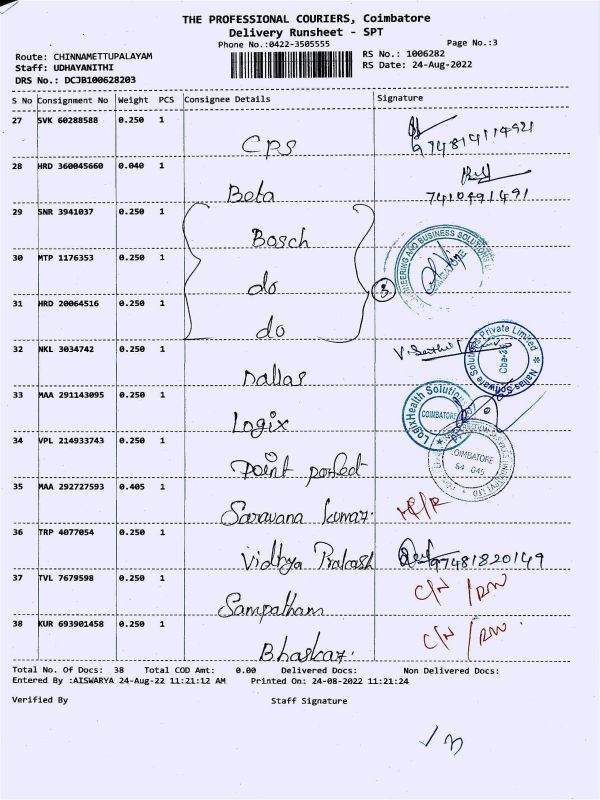 THE PROFESSIONAL COURIERS, Coimbatore
Delivery Runsheet - SPT
Phone No.:0422-3505555
Page No.:3
Route: CHINNAMETTUPALAYAM
RS No.: 1006282
Staff: UDHAYANITHI
RS Date: 24-Aug-2022
DRS No.: DCJB100628203
S No Consignment No Weight PCS Consignee Details Signature
27 SVK 60288588 0.250 1
CPS
28 HRD 360045660 0.040 1
Beta 7410491491
29 SNR 3941037 0.250 1
Bosch
30 MTP 1176353 0.250 1
do 3
31 HRD 20064516 0.250 1
do
32 NKL 3034742 0.250 1
Nallas
Nallas Software Solutions Private Limited
33 MAA 291143095 0.250 1
Logix
LogixHealth Solutions
COIMBATORE
34 VPL 214933743 0.250 1
Point perfect
COIMBATORE
35 MAA 292727593 0.405 1
Saravana kumar.
36 TRP 4077054 0.250 1
Vidhya Prakash 97481820149
37 TVL 7679598 0.250 1
Sampatham C/N /RW
38 KUR 693901458 0.250 1
Bhaskar. C/N /RW.
Total No. Of Docs: 38 Total COD Amt: 0.00 Delivered Docs: Non Delivered Docs:
Entered By :AISWARYA 24-Aug-22 11:21:12 AM Printed On: 24-08-2022 11:21:24
Verified By Staff Signature